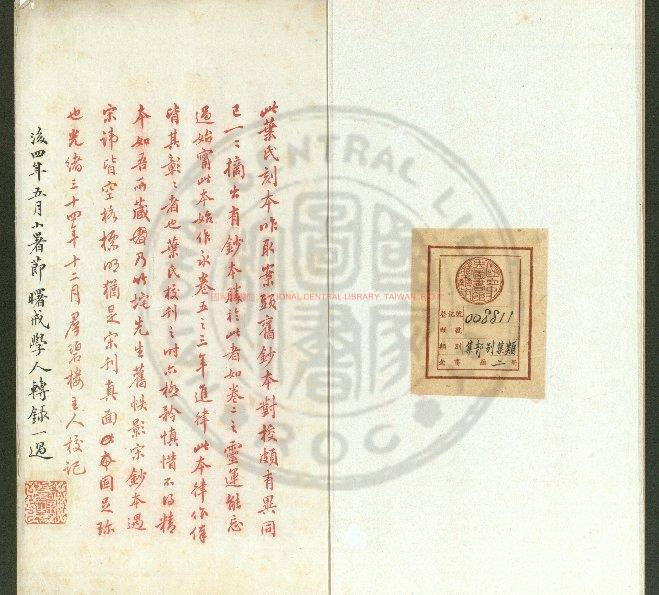 此葉氏刻本昨取案頭舊鈔本對校頗有異同
已一一摘出有鈔本勝於此者如卷二之靈運能忘
過始寧此本始作永卷五之三年進律此本律作律
皆其彰彰者也葉氏校刊之時亦極矜慎惜不得精
本如吾所藏者乃竹垞先生舊帙影宋鈔本遇
宋諱皆空格標明猶是宋刊真面此本固足珍
也光緒三十四年十二月羣碧樓主人校記
後四年五月小暑節曙戒學人轉錄一過
登記號 008811
類別 集部別集類
NATIONAL CENTRAL LIBRARY, TAIWAN, R.O.C